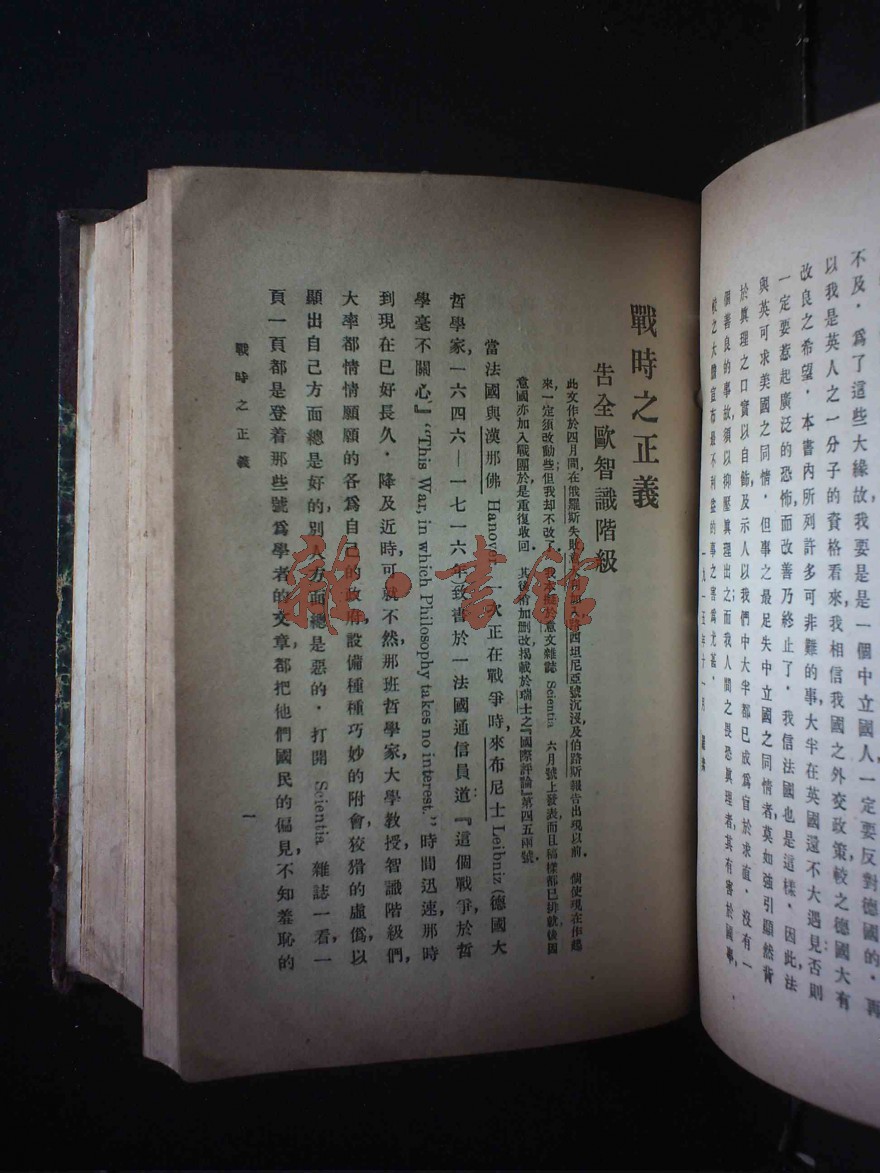 不及．爲了這些大緣故我要是是一個中立國人，一定要反對德國的．再
以我是英人之一分子的資格看來，我相信我國之外交政策，較之德國大有
改良之希望．本書內所列許多可非難的事，大半在英國還不大遇見；否則
一定要惹起廣泛的恐怖，而改善乃終止了．我信法國也是這樣．因此，法
與英可求美國之同情．但事之最足失中立國之同情者，莫如強引顯然背
於眞理之口實以自飾，及示人以我們中大半都已成爲盲於求直．沒有一
個善良的事故，須以抑壓眞理出之；而我人間之畏恐眞理者，其有害於國事，
較之大膽宣布最不利益的事之害爲尤甚．
一九一五年十一月 羅素
戰時之正義
告全歐智識階級
此文作於四月間，在俄羅斯失敗，意大利加入，路西坦尼亞號沉沒，及伯路斯報告出現以前．倘使現在作起
來，一定須改動些；但我却不改了．我本擬於意文雜誌 Scientia 六月號上發表，而且稿樣都已排就，後因
意國亦加入戰團，於是重復收回．其後稍加刪改，揭載於瑞士之『國際評論』第四五兩號．
當法國與漢那佛 Hanover 一次正在戰爭時，來布尼士 Leibniz (德國大
哲學家，一六四六—一七一六年致書於一法國通信員道：『這個戰爭，於哲
學毫不關心』 "This War, in which Philosophy takes no interest." 時間迅速，那時
到現在已好長久．降及近時，可就不然，那班哲學家，大學教授，智識階級們，
大率都情情願願的各爲自己的政府，設備種種巧妙的附會，狡猾的虛僞，以
顯出自己方面總是好的，別人方面總是惡的．打開 Scientia 雜誌一看，一
頁一頁都是登着那些號爲學者的文章，都把他們國民的偏見，不知羞恥的
戰時之正義
一
雜·書館